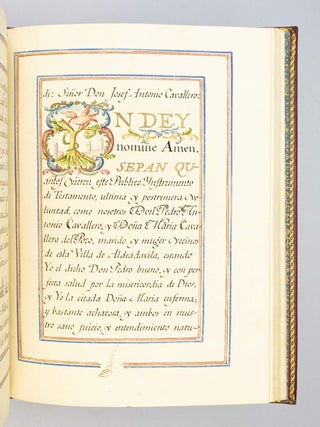 di: Señor Don Josef Antonio Cavallero:
N DEY
nomine Amen.
SEPAN QU
antos vieren este Publico Ynstrumento
de Testamento, ultima y postrimera vo
luntad, como nosotros Don Pedro An
tonio Cavallero, y Doña Maria Cava
llero del Pozo, marido y muger vecinos
de esta Villa de Aldeadavila, estando
Yo el dicho Don Pedro bueno, y con per
fecta salud por la misericordia de Dios,
y Yo la citada Doña Maria enferma;
y bastante achacosa, y ambos en nues
tro sano juicio, y entendimiento natu-